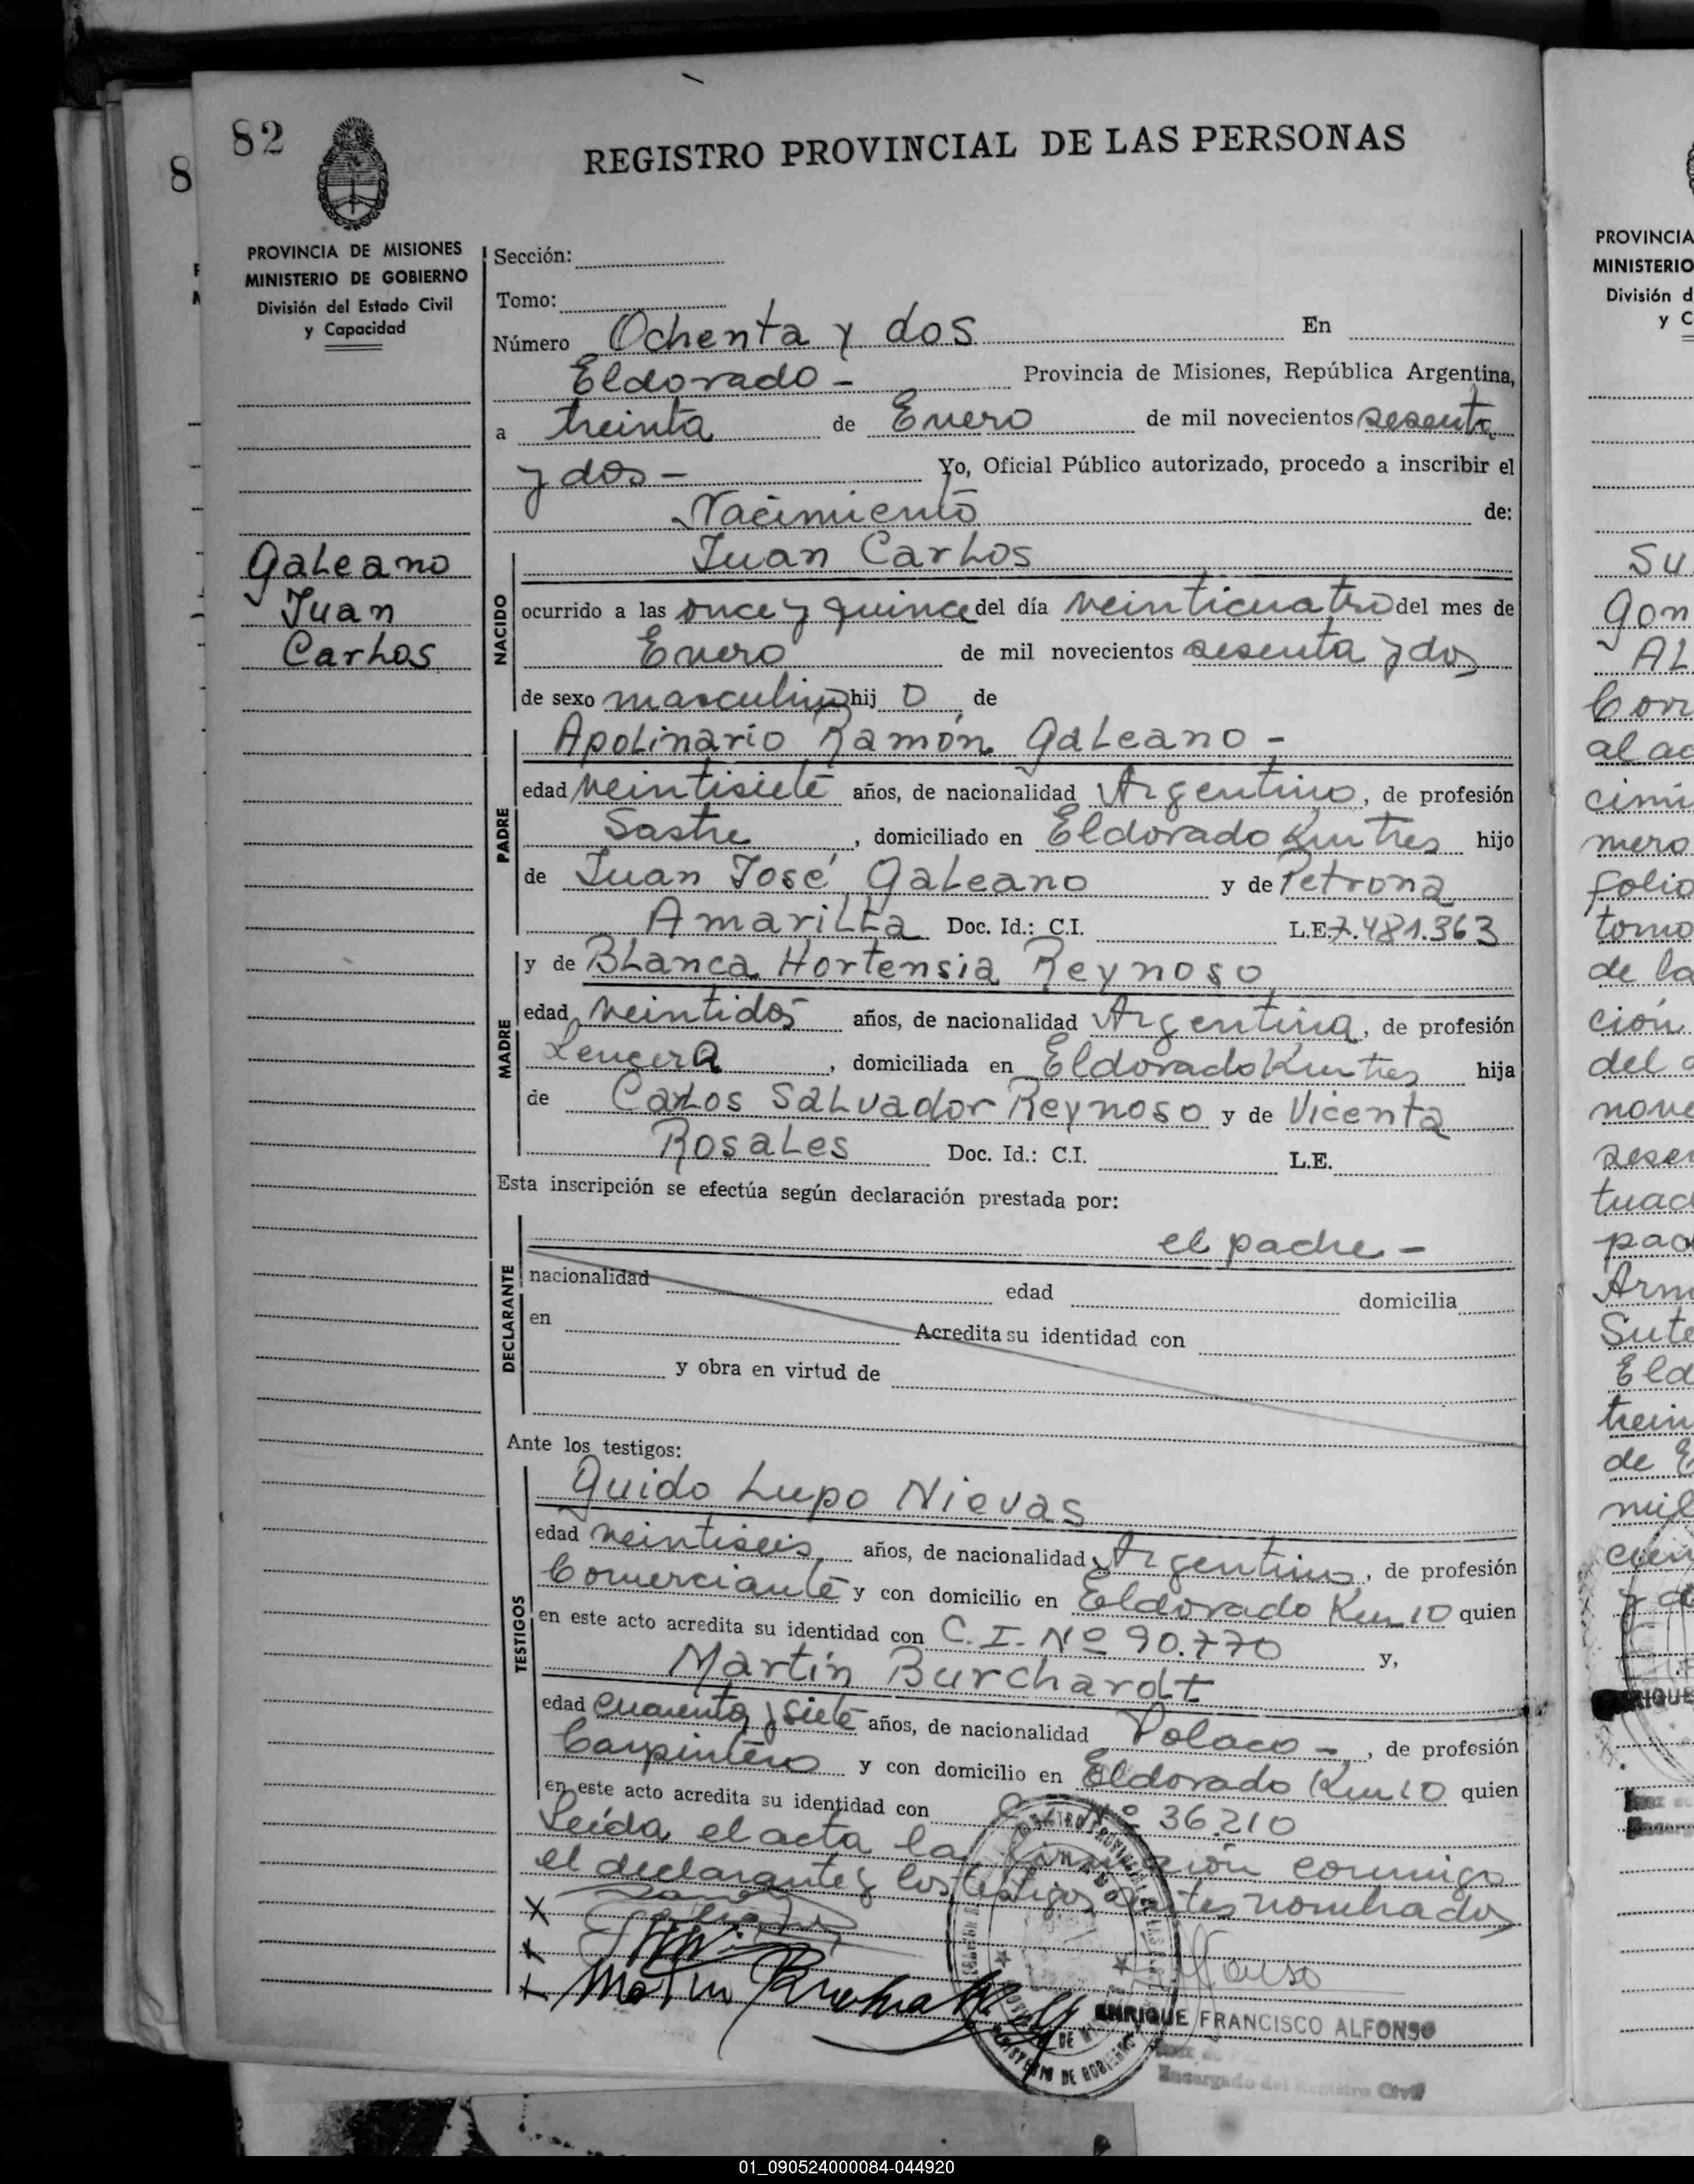 82
REGISTRO PROVINCIAL DE LAS PERSONAS
8
PROVINCIA DE MISIONES
MINISTERIO DE GOBIERNO
División del Estado Civil
y Capacidad
Galeano
Juan
Carlos
Sección:
Tomo:
Número Ochenta y dos En
Eldorado - Provincia de Misiones, República Argentina,
a treinta de Enero de mil novecientos sesenta
y dos - Yo, Oficial Público autorizado, procedo a inscribir el
Nacimiento de:
Juan Carlos
NACIDO
ocurrido a las once y quince del día veinticuatro del mes de
Enero de mil novecientos sesenta y dos
de sexo masculino hij o de
Apolinario Ramón Galeano -
PADRE
edad veintisiete años, de nacionalidad Argentino, de profesión
Sastre, domiciliado en Eldorado Km tres hijo
de Juan José Galeano y de Petrona
Amarilla Doc. Id.: C.I. L.E. 7.481.363
y de Blanca Hortensia Reynoso
MADRE
edad veintidos años, de nacionalidad Argentina, de profesión
Lencera, domiciliada en Eldorado Km tres hija
de Carlos Salvador Reynoso y de Vicenta
Rosales Doc. Id.: C.I. L.E.
Esta inscripción se efectúa según declaración prestada por:
el padre -
DECLARANTE
nacionalidad edad domicilia
en Acredita su identidad con
y obra en virtud de
Ante los testigos:
Guido Lupo Nievas
TESTIGOS
edad veintiseis años, de nacionalidad Argentino, de profesión
Comerciante y con domicilio en Eldorado Km 10 quien
en este acto acredita su identidad con C.I. Nº 90.770 y,
Martín Burchardt
edad cuarenta y siete años, de nacionalidad Polaco -, de profesión
Carpintero y con domicilio en Eldorado Km 10 quien
en este acto acredita su identidad con Nº 36.210
Leída el acta la conmigo
el declarante y los testigos antes nombrados
X
X
X Martin
ENRIQUE FRANCISCO ALFONSO
Encargado del Registro Civil
PROVINCIA
MINISTERIO
División d
y C
Su
Gon
AL
Corr
al ac
cimi
mero
folio
tomo
de la
ción
del a
nove
sesen
tuad
pad
Arm
Sute
Eld
trein
de E
mil
01_090524000084-044920